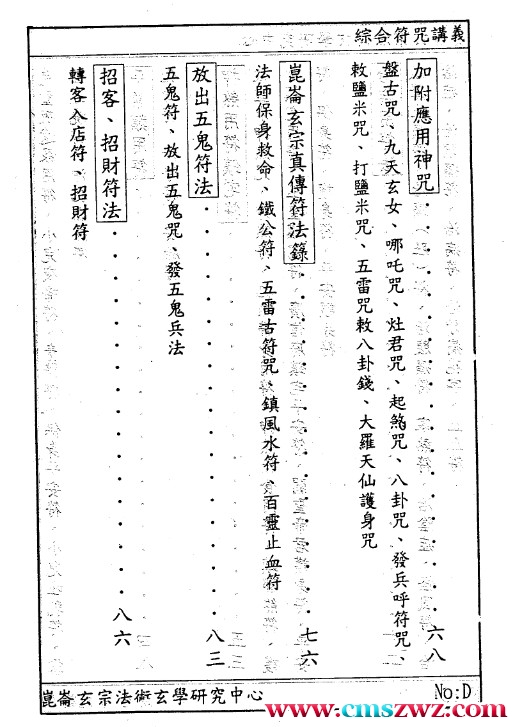 綜合符咒講義
加附應用神咒．．．．．．．．．．．．．．．．六八
盤古咒、九天玄女、哪吒咒、灶君咒、起煞咒、八卦咒、發兵呼符咒、
敕鹽米咒、打鹽米咒、五雷咒敕八卦錢、大羅天仙護身咒
崑崙玄宗真傳符法籙．．．．．．．．．．．．．七六
法師保身救命、鐵公符、五雷古符咒、鎮風水符、百靈止血符
放出五鬼符法．．．．．．．．．．．．．．．．八三
五鬼符、放出五鬼咒、發五鬼兵法
招客、招財符法．．．．．．．．．．．．．．．八六
轉客入店符、招財符
崑崙玄宗法術玄學研究中心
No:D
www.cmszwz.com